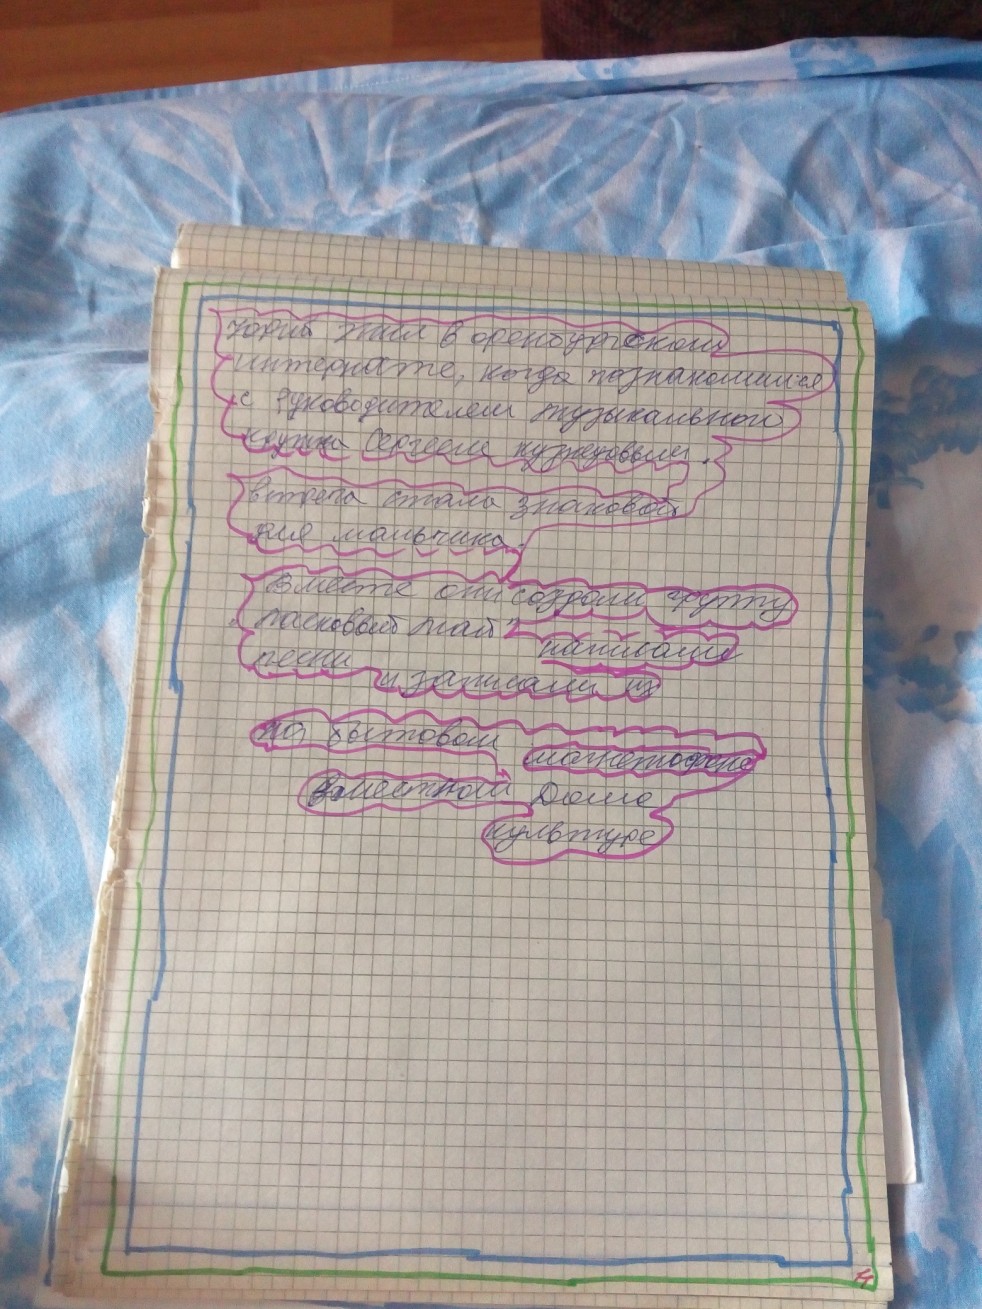 Юрий жил в оренбургском
интернате, когда познакомился
с Руководителем музыкального
кружка Сергеем кузнецовым.
встреча стала знаковой
для мальчика.
Вместе они создали группу
"Ласковый май"
написали
песни
и записали их
на бытовом
магнетофоне
в местном Доме
культуре
14